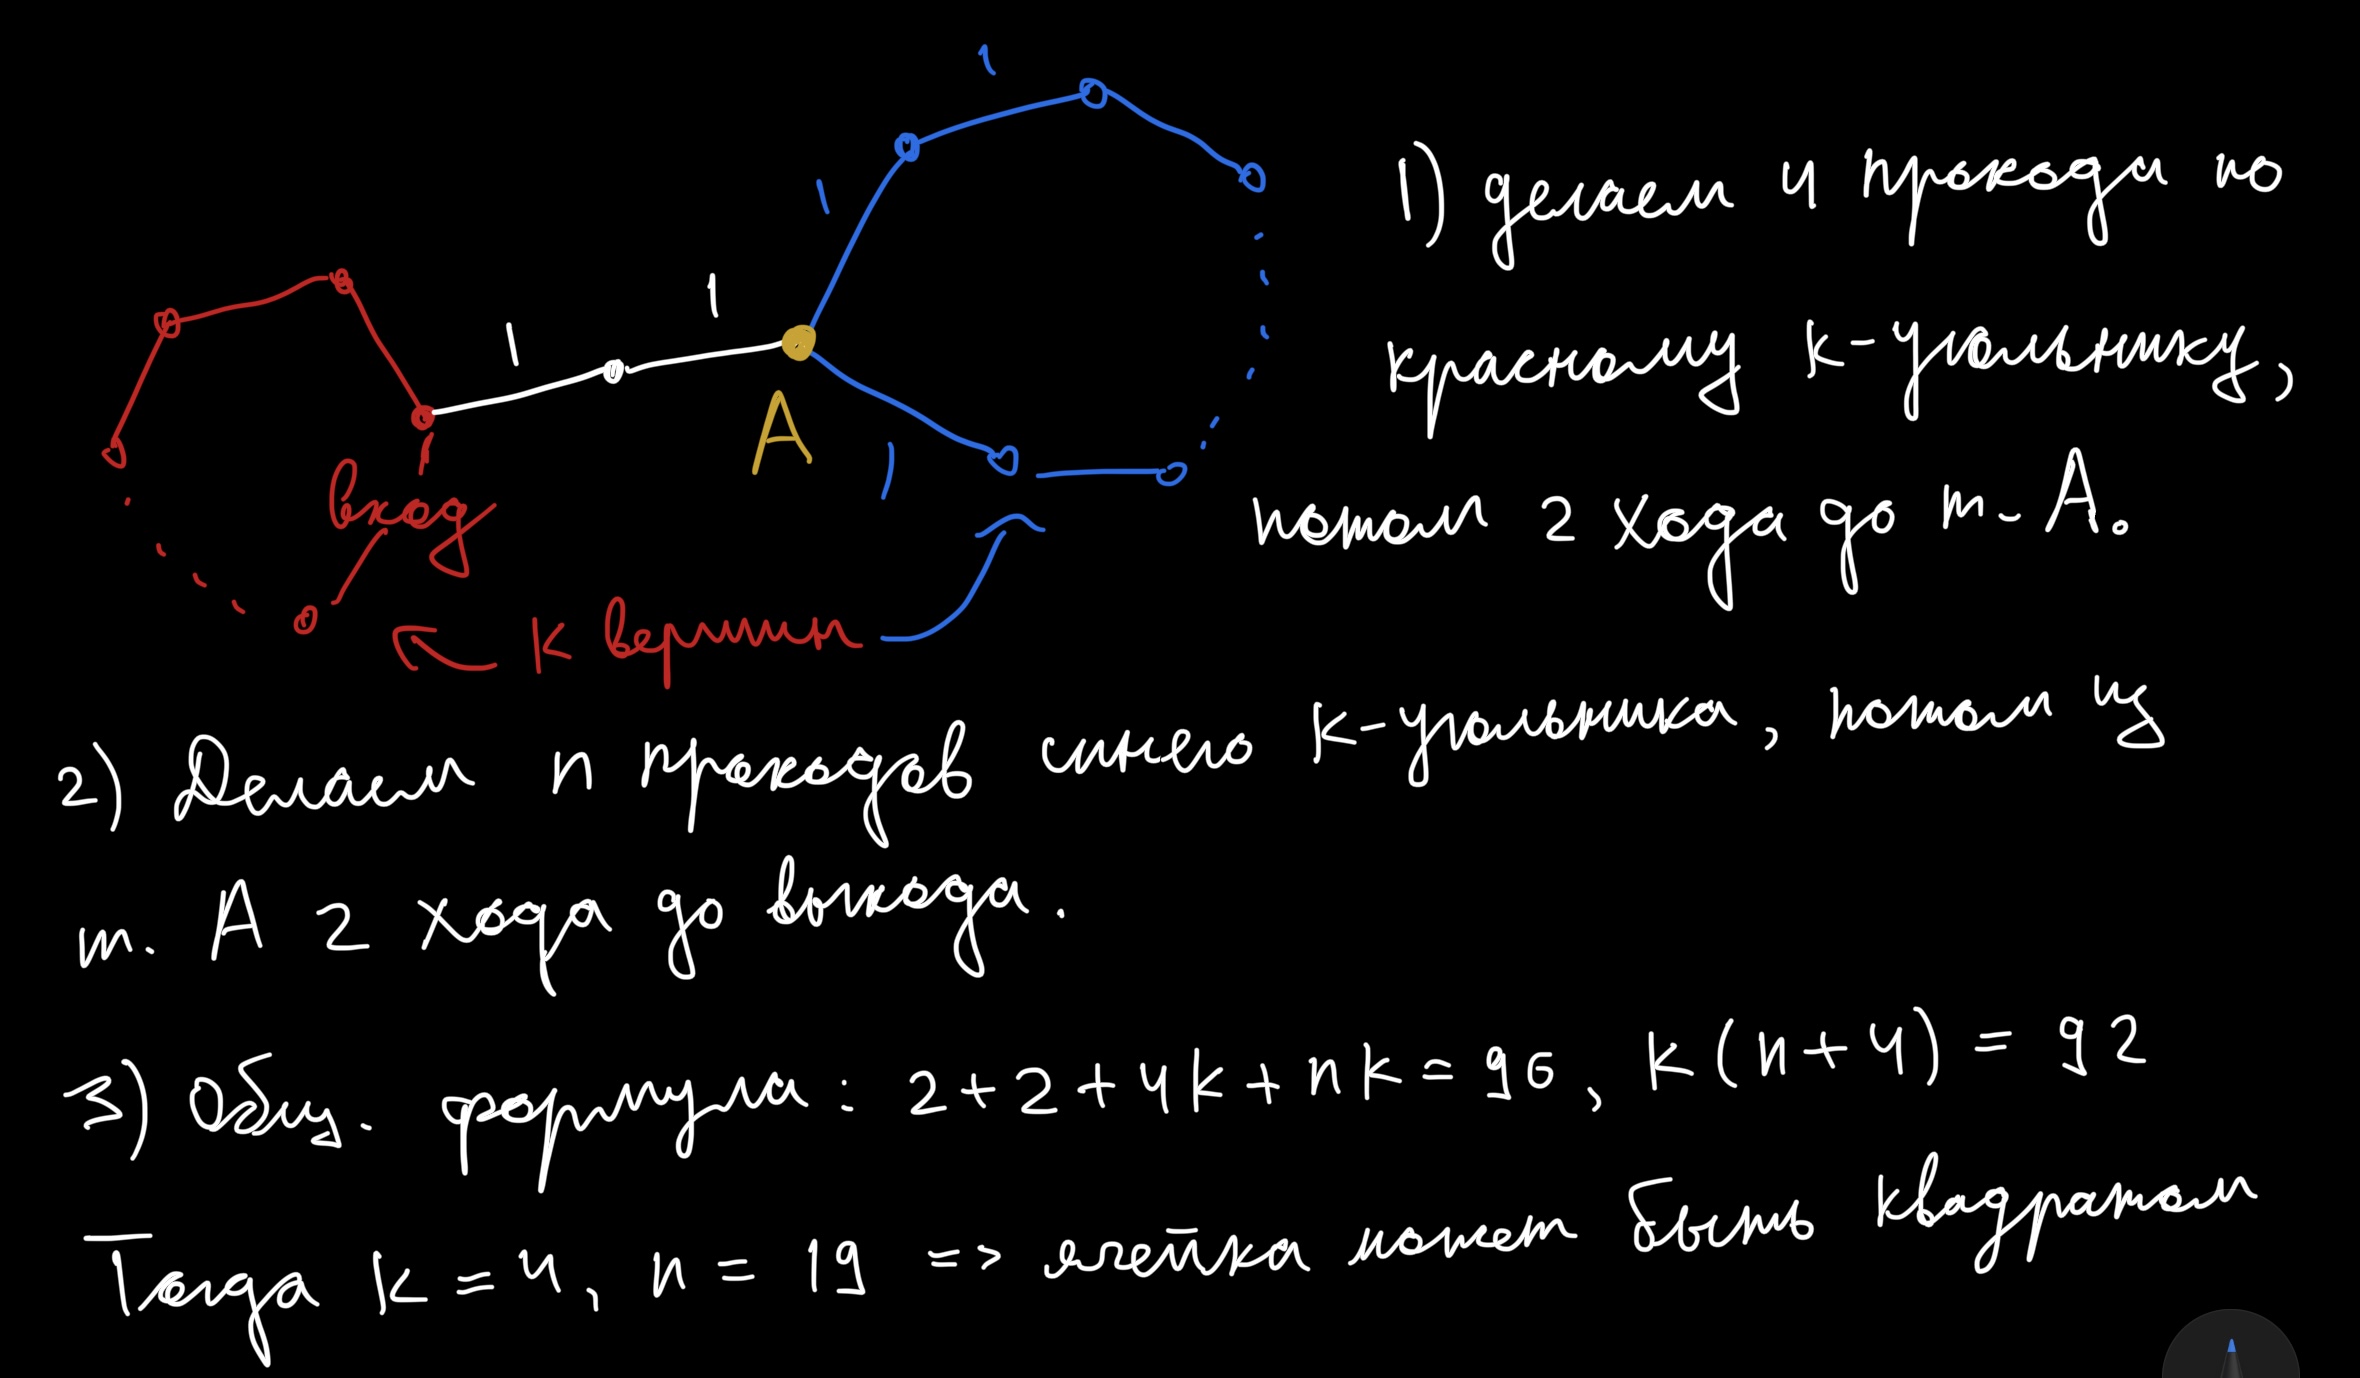 1
1
1
1
1
A
вход
к вершин
1) делаем 4 прохода по
красному к-угольнику,
потом 2 хода до т. А.
2) Делаем n проходов синего к-угольника, потом из
т. А 2 хода до выхода.
3) Общ. формула: 2+2+4k+nk=96, k(n+4)=92
Тогда k=4, n=19 => ячейка может быть квадратом